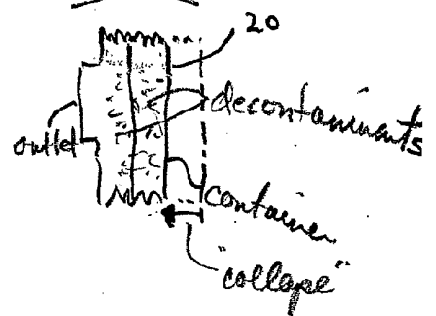 20
decontaminants
outlet
container
"collapse"